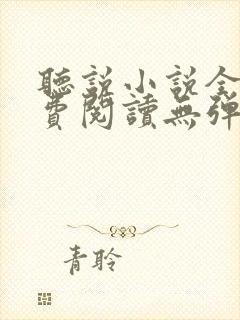 聽說小說全
費閱讀無彈
青聆